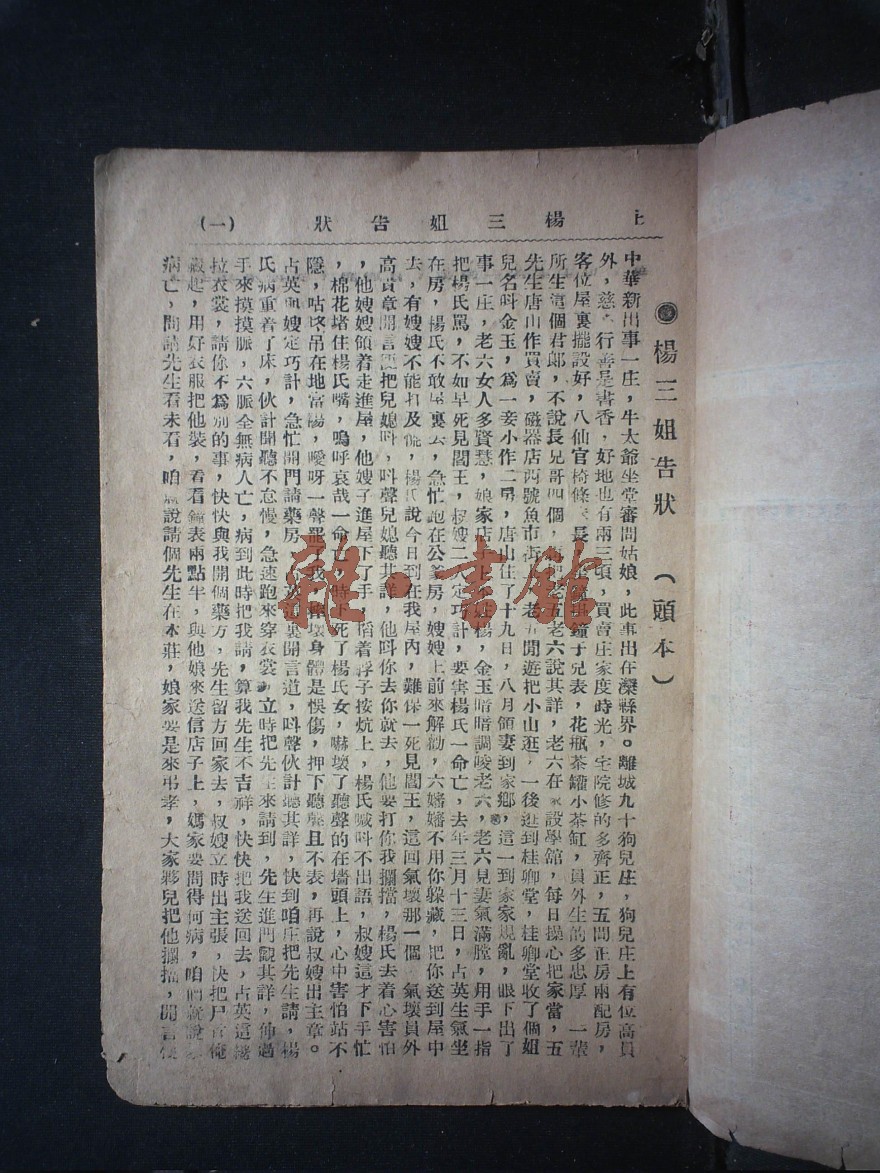 上 楊三姐告狀 (一)
●楊三姐告狀 (頭本)
中華新出事一庄，牛大爺坐堂審問姑娘，此事出在灤縣界。離城九十狗兒庄，狗兒庄上有位高員
外，慈心行善是書香，好地也有兩三頃，買賣庄家度時光，宅院修的多齊正，五間正房兩配房，
客位屋裏擺設好，八仙官椅條長，鐘子兒表，花瓶茶罐小茶缸，員外生的多忠厚，一輩
所生這個君郎，不說長兄哥四個，老五老六說其詳，老六在家設學舘，每日操心把家當，五
先生唐山作買賣，磁器店西號魚市街，老五閒遊把小山逛，一後逛到桂卿堂，桂卿堂收了個姐
兒名呌金玉，爲一妾小作二房，唐山住了十九日，八月領妻到家鄉，這一到家家規亂，眼下出了
事一庄，老六女人多賢慧，娘家店子上本姓楊，金玉暗暗調唆老六，老六見妻氣滿膛，用手一指
把楊氏罵，不如早死見閻王，叔嫂二人定巧計，要害楊氏一命亡，去年三月十三日，占英生氣坐
在房，楊氏不敢屋裏去，急忙跑在公爹房，嫂嫂上前來解勸，六嬸嬸不用你躲藏，把你送到屋中
去，有嫂嫂不能打及你，楊氏說今日到在我屋內，難保一死見閻王，這回氣壞那一個，氣壞員外
高貴章開言便把兒媳呌，呌聲兒媳聽其詳，他呌你去你就去，他要打你我攔擋，楊氏去着心害怕
，他嫂嫂領着走進屋，他嫂子進屋下了手，掐着脖子按炕上，楊氏喊呌不出語，叔嫂這才下手忙
，棉花堵住楊氏嘴，嗚呼哀哉一命亡，時下死了楊氏女，嚇壞了聽聲的在墻頭上，心中害怕站不
隱，咕咚吊在地當陽，噯呀一聲罷了我，摔壞身體是悞傷，押下聽聲且不表，再說叔嫂出主章。
占英與嫂定巧計，急忙開門請藥房，占英這裏開言道，呌聲伙計聽其詳，快到咱庄把先生請，楊
氏病重着了床，伙計聞聽不怠慢，急速跑來穿衣裳，立時把先生來請到，先生進門觀其詳，伸過
手來摸摸脈，六脈全無病人亡，病到此時把我請，算我先生不吉祥，快快把我送回去，占英這裏
拉衣裳，請你不爲別的事，快快與我開個藥方，先生留方回家去，叔嫂立時出主張，快把尸首掩
藏起，用好衣服把他裝，看看鐘表兩點半，與他娘來送信店子上，媽家要問得何病，咱們就說
病亡，問請先生看未看，咱就說請個先生在本莊，娘家要是來弔孝，大家夥兒把他攔擋，開言
雜·書館